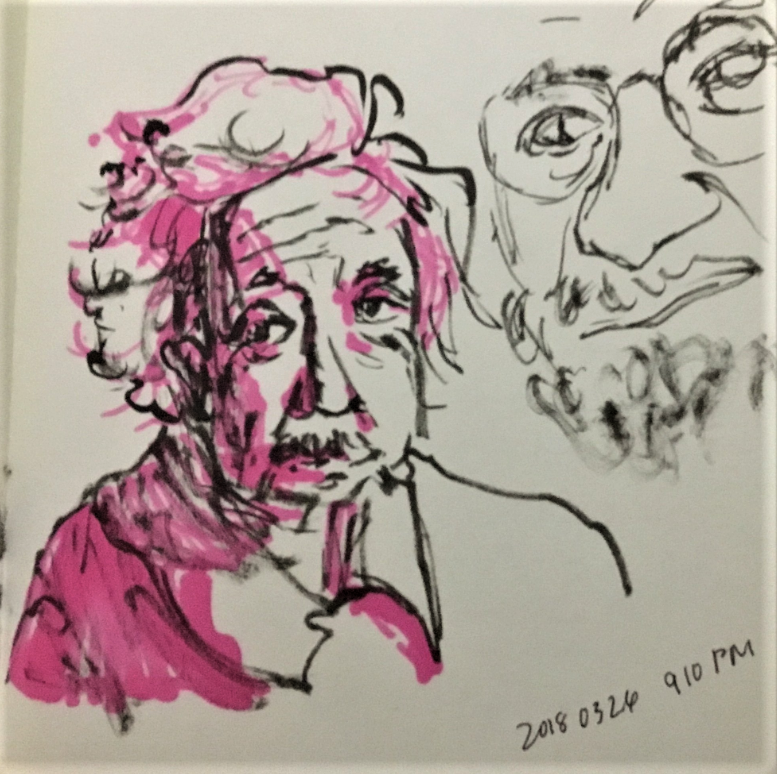 2018 03 24 910 PM